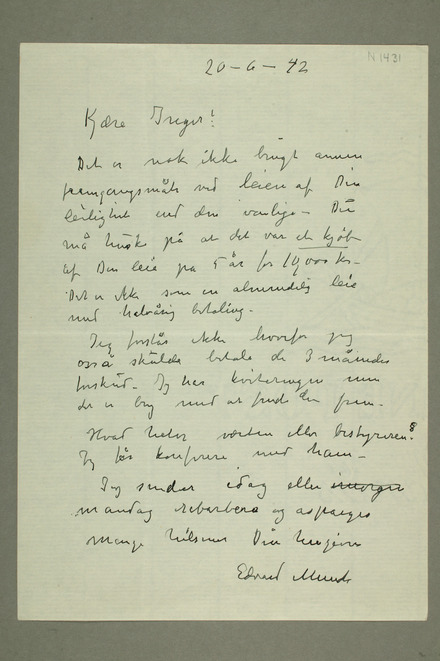 N 1431
20-6-42
Kjære Inger!
Det er nok ikke brugt annen
fremgangsmåte ved leien af Din
leilighet end den vanlige – Du
må huske på at det var et kjøb
af Din leie på 5 år for 10,000 kr –
Det er ikke som en almindelig leie
med halvårig betaling –
Jeg forstår ikke hvorfor jeg
også skulde betale de 3 måneder
forskud – Jeg har kvitteringen men
det er bry med at finde den frem –
Hvad heter værten eller bestyreren?
Jeg får konferere med ham –
Jeg sender idag eller imorgen
mandag rabarbera og asparges
Mange hilsener Din hengivne
Edvard Munch